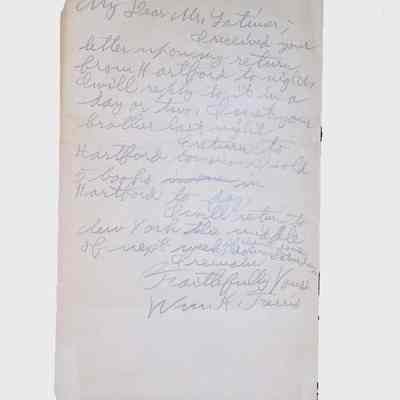 My Dear Mr. Latimer;
I received your
letter upon my return
from Hartford to night,
I will reply to it in a
day or two. I met your
brother last night
I return to
Hartford tomorrow, sold
5 books in
Hartford to day
I will return to
New York the middle
of next week
I remain
Faithfully Yours
Wm. H. Ferris